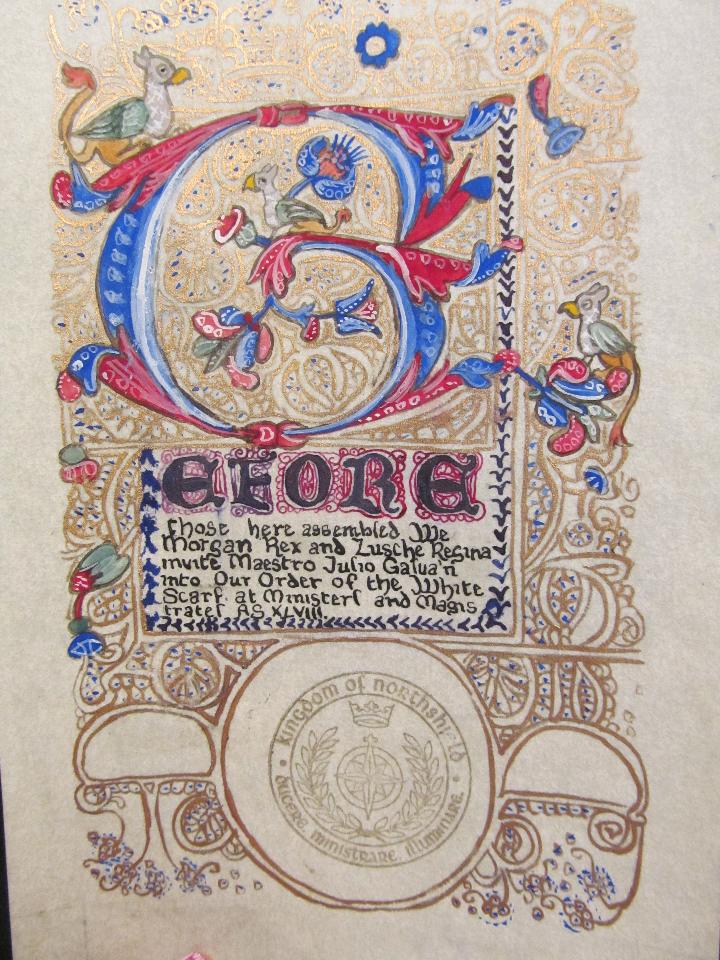 BEFORE
those here assembled We
Morgan Rex and Lusche Regina
invite Maestro Julio Galua'n
into Our Order of the White
Scarf. at Ministers and Magis
trates AS XLVIII
Kingdom of Northshield
Ducere. Ministrare. Illuminare.